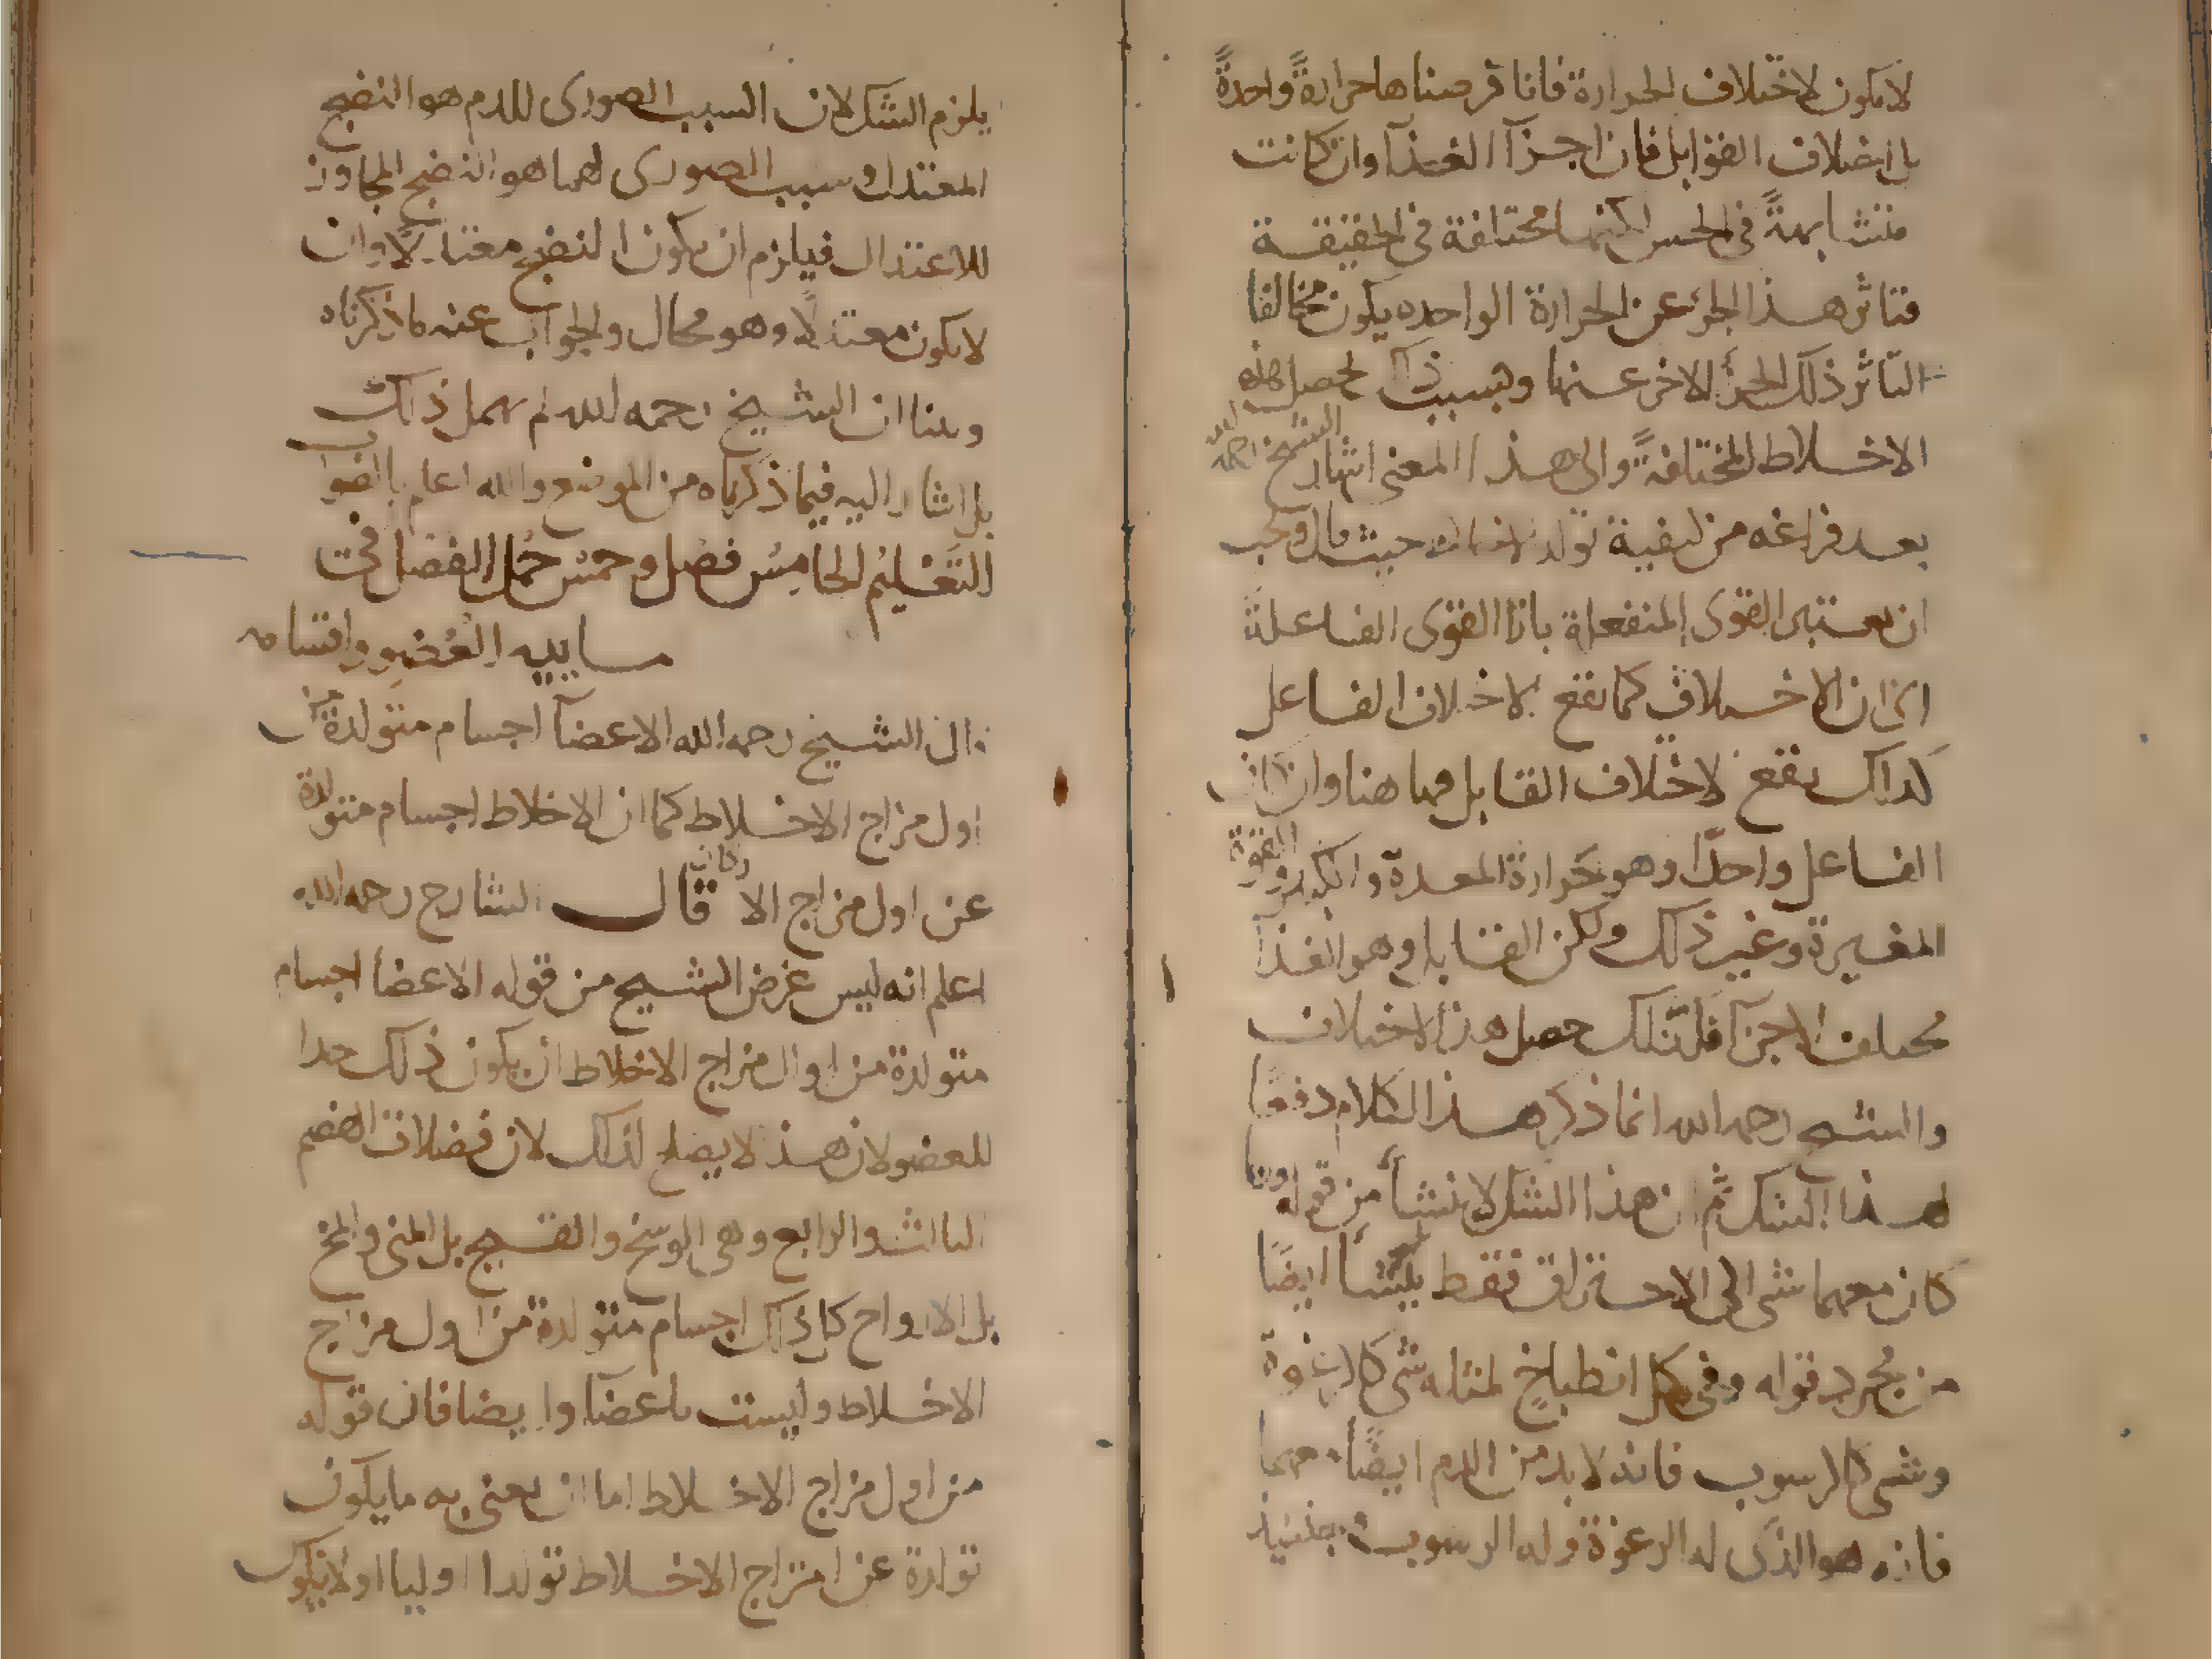 لا يكون لاختلاف الحرارة فانا فرضناها حرارةً واحدةً
بل اختلاف القوابل فان اجزآ الغذآ وان كانت
متشابهةً في الحس لكنها مختلفة في الحقيقة
فتاثر هذا الجزء عن الحرارة الواحده يكون مخالفا
التاثر ذلك الجزء الاخر عنها وبسبب ذلك تحصل هذه
الاخلاط المختلفة والى هذا المعنى اشار الشيخ رحمه الله
بعد فراغه من كيفية تولد الاخلاط حيث قال ويجب
ان يعتبر القوى المنفعلة بازا القوى الفاعلة
اى ان الاختلاف كما يقع لاختلاف الفاعل
كذلك يقع لاختلاف القابل فها هنا وان كان
الفاعل واحدًا وهو حرارة المعدة والكبد والقوة
المغيرة وغير ذلك ولكن القابل وهو الغذآ
مختلف الاجزآ فلذلك حصل هذا الاختلاف
والشيخ رحمه الله انما ذكر هذا الكلام دفعًا
لهذا الشك ثم ان هذا الشك لا ينشأ من قوله وربما
كان معهما شى الى الاحتراق فقط بل ينشأ ايضًا
من مجرد قوله وفى كل انطباخٍ لمثله شى كالرغوة
وشى كالرسوب فانه لابد من الدم ايضًا معهما
فانه هو الذى له الرغوة وله الرسوب فحينئذ
يلزم الشك لان السبب الصورى للدم هو النضج
المعتدل وسبب الصورى لهما هو النضج المجاوز
للاعتدال فيلزم ان يكون النضج معتدلًا وان
لا يكون معتدلًا وهو محال والجواب عنه ما ذكرناه
وبينا ان الشيخ رحمه الله لم يهمل ذلك
بل اشار اليه فيما ذكرناه من الموضع والله اعلم بالصواب
التَّعْلِيْم الخامِسُ فصْل وخمْس جُمَل الفصْل فى
ماهيه العُضو واقسامه
قال الشيخ رحمه الله الاعضآ اجسام متولدة من
اول مزاج الاخلاط كما ان الاخلاط اجسام متولدة
عن اول مزاج الاركان قال الشارح رحمه الله
اعلم انه ليس غرض الشيخ من قوله الاعضا اجسام
متولدة من اول مزاج الاخلاط ان يكون ذلك حدا
للعضو لان هذا لا يصلح لذلك لان فضلات الهضم
الثالث والرابع وهى الوسخ والقيح بل المنى والمخ
بل الارواح كل ذلك اجسام متولدة من اول مزاج
الاخلاط وليست باعضآ وايضا فان قوله
من اول مزاج الاخلاط اما ان يعنى به ما يكون
تولدة عن امتزاج الاخلاط تولدا اوليا او لا يكون